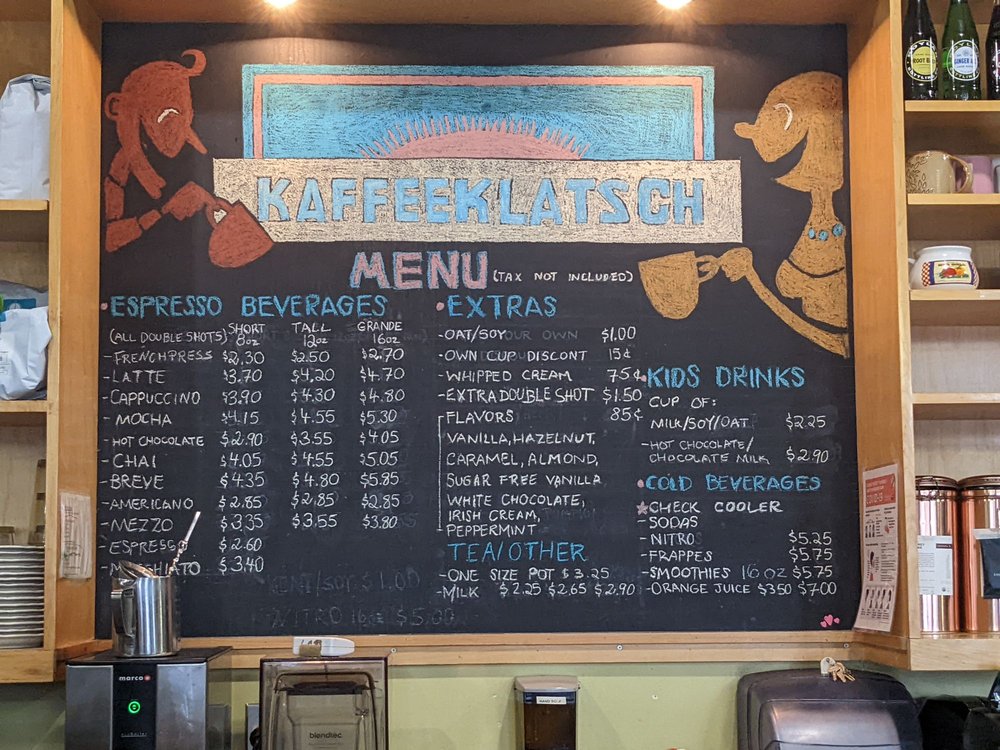 KAFFEEKLATSCH
MENU (TAX NOT INCLUDED)
ESPRESSO BEVERAGES
(ALL DOUBLE SHOTS) SHORT 8oz TALL 12oz GRANDE 16oz
-FRENCHPRESS $2.30 $2.50 $2.70
-LATTE $3.70 $4.20 $4.70
-CAPPUCCINO $3.90 $4.30 $4.80
-MOCHA $4.15 $4.55 $5.30
-HOT CHOCOLATE $2.90 $3.55 $4.05
-CHAI $4.05 $4.55 $5.05
-BREVE $4.35 $4.80 $5.85
-AMERICANO $2.85 $2.85 $2.85
-MEZZO $3.35 $3.55 $3.80
-ESPRESSO $2.60
$3.40
EXTRAS
-OAT/SOY $1.00
-OWN CUP DISCONT 15¢
-WHIPPED CREAM 75¢
-EXTRA DOUBLE SHOT $1.50
-FLAVORS 85¢
VANILLA, HAZELNUT,
CARAMEL, ALMOND,
SUGAR FREE VANILLA
WHITE CHOCOLATE,
IRISH CREAM,
PEPPERMINT
TEA/OTHER
-ONE SIZE POT $3.25
-MILK $2.25 $2.65 $2.90
KIDS DRINKS
CUP OF:
MILK/SOY/OAT $2.25
-HOT CHOCOLATE/
CHOCOLATE MILK $2.90
COLD BEVERAGES
CHECK COOLER
-SODAS
-NITRO $5.25
-FRAPPES $5.75
-SMOOTHIES 16 OZ $5.75
-ORANGE JUICE $350 $7.00
NITRO 16oz $5.00
marco
blendtec
ROOT BEER
GINGER ALE
COVID-19